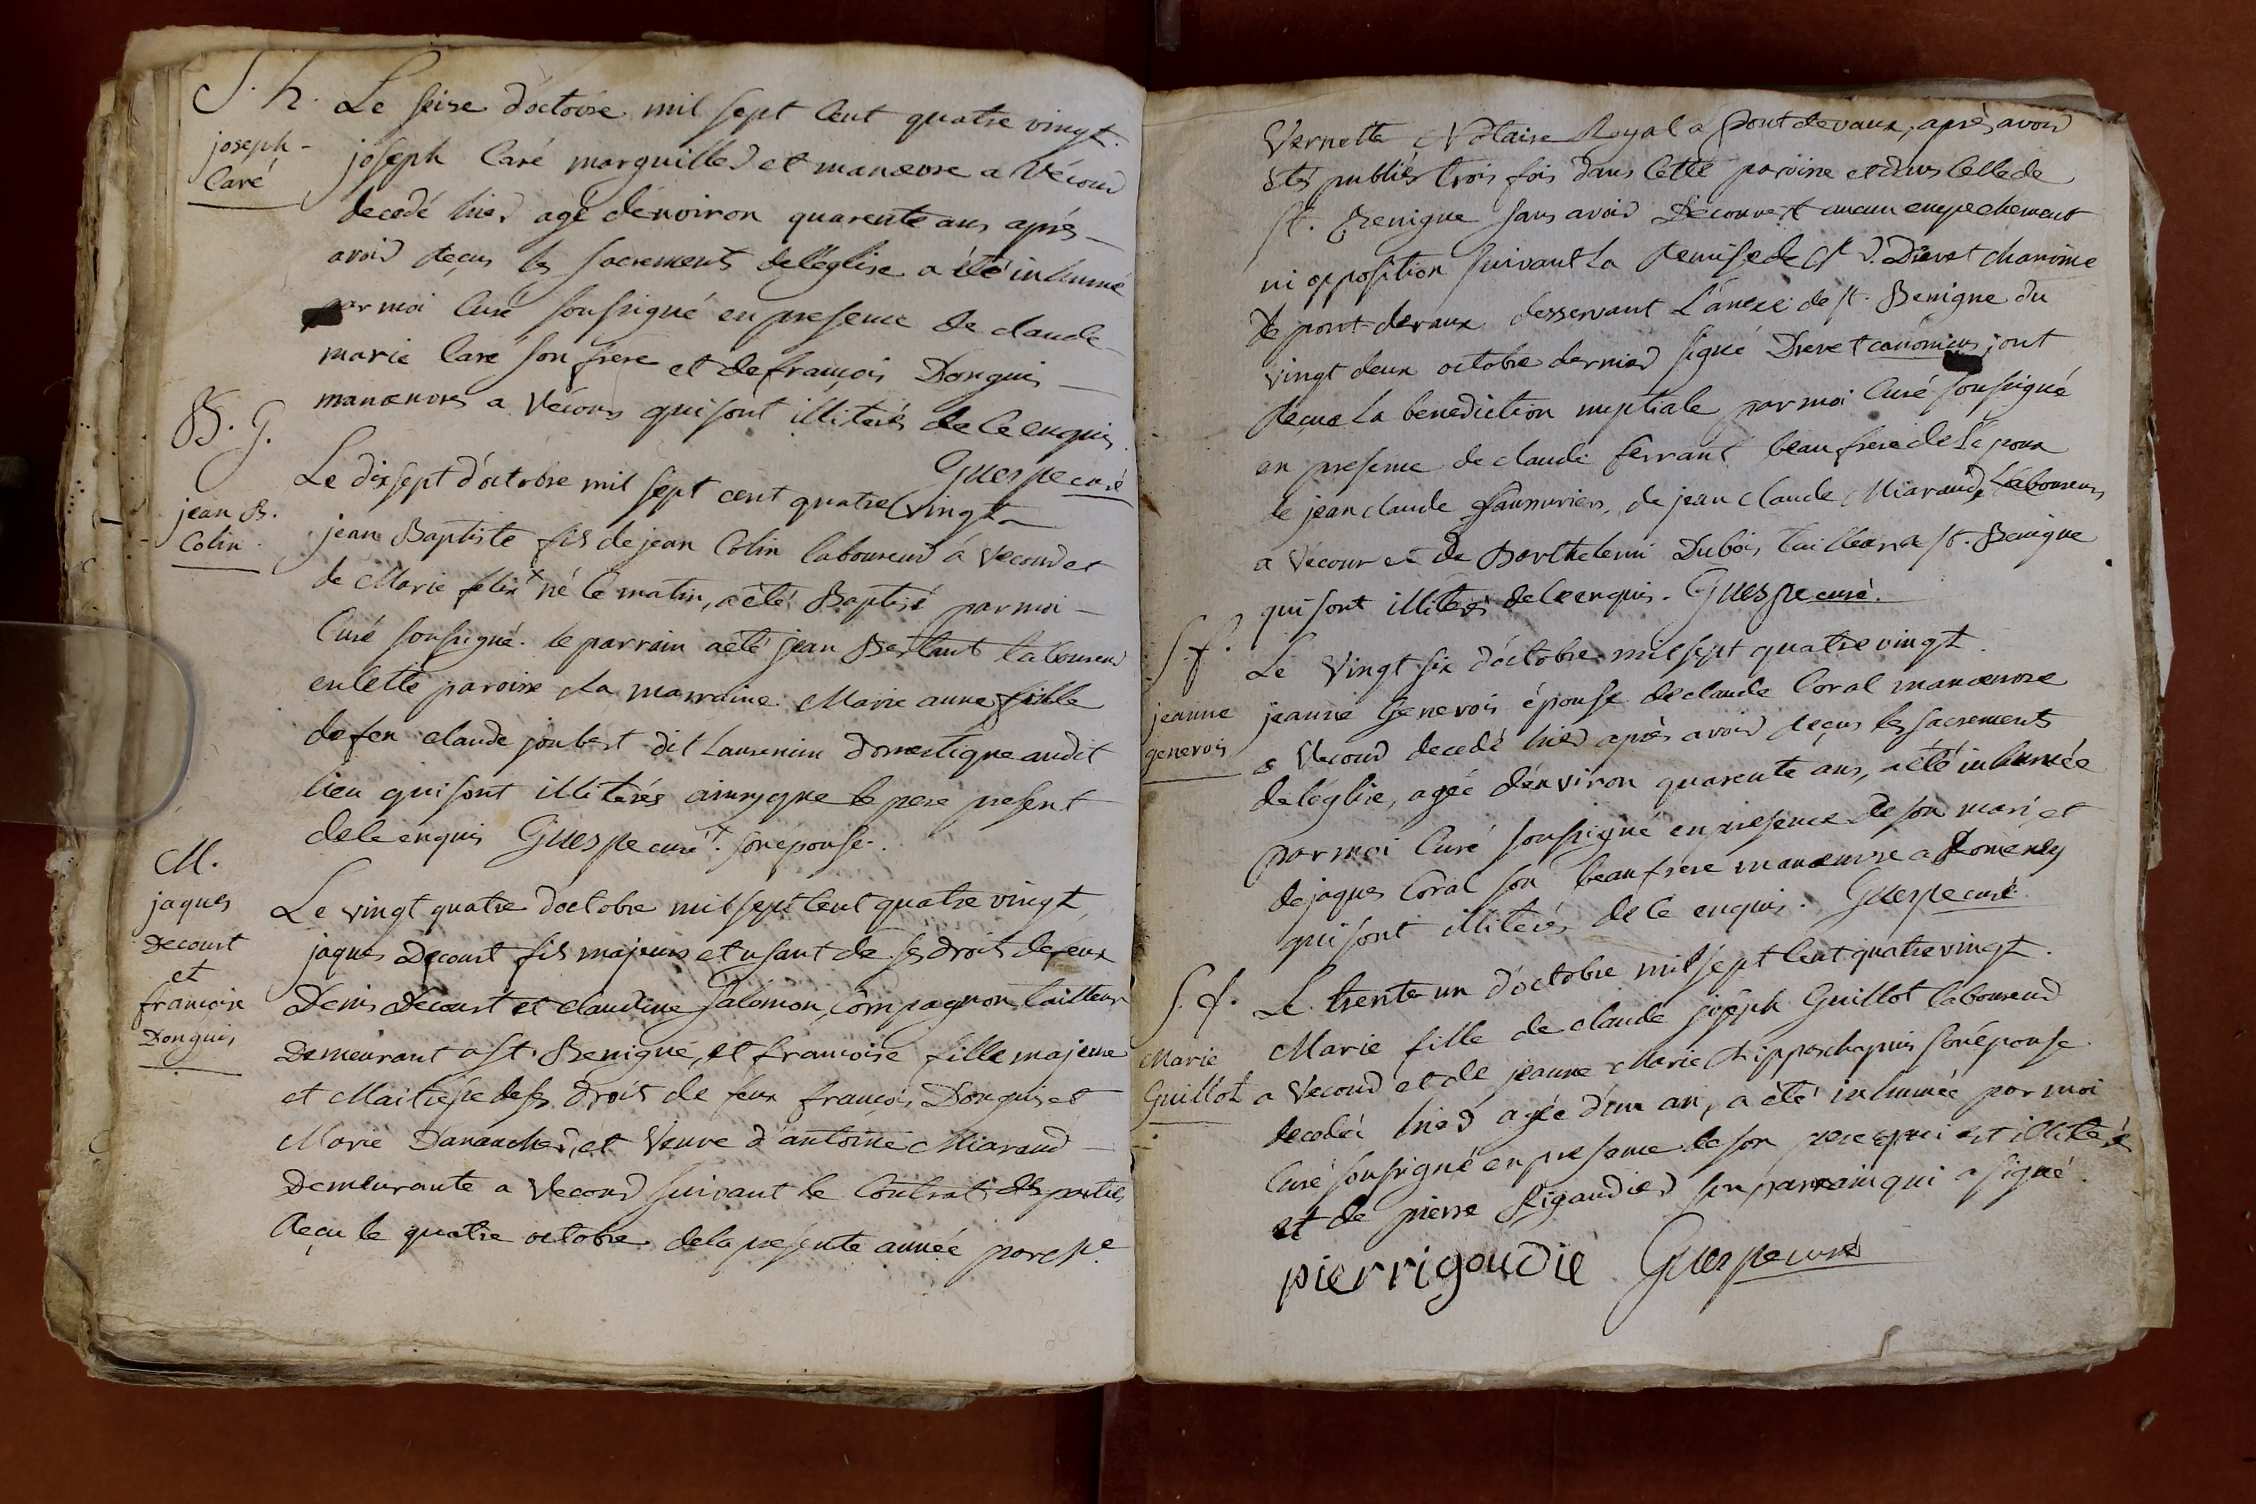 S. h.
joseph -
Caré
Le seise d'octobre mil sept cent quatre vingt.
joseph Caré marguiller et manœuvre a Vécour
decedé hier agé d'environ quarente ans après -
avoir reçus les sacrements de l'eglise a été inhumé
par moi Curé soussigné en presence de claude -
marie Caré son frere et de françois Donguis -
manœuvres a Vécours qui sont illiterés de ce enquis.
Guerpe curé
B. G.
jean B.
Colin.
Le dixsept d'octobre mil sept cent quatre vingt -
jean Baptiste fils de jean Colin laboureur à Vecour et
de Marie felix + né ce matin, a été Baptisé par moi -
Curé soussigné. le parrain a été jean Berlant laboureur
en cette paroisse et la marraine Marie anne fille
de feu claude joubert dit Laurencin domestique audit
lieu qui sont illiterés ainsy que le pere present
de ce enquis Guerpe curé. + son épouse.
M.
jaques
Decourt
et
francoise
Donguis
Le vingt quatre d'octobre mil sept cent quatre vingt,
jaques Decourt fils majeurs et usant de ses droits de feux
Denis Decourt et claudine Salomon, Compagnon tailleur
Demeurant a St. Benigne, et francoise fille majeure
et Maitresse de ses droits de feux françois Donguis et
Marie Danancher, et Veuve d'antoine Miaraud -
Demeurante a Vecour suivant le Contrat des parties
Reçu le quatre octobre de la presente année par Me.
Vernette Notaire Royal a pont devaux, après avoir
étés publiés trois fois dans cette paroisse et dans celle de
St. Benigne sans avoir Decouvert aucun empechement
ni opposition suivant la Remise de Sr. Drevet chanoine
de pont-devaux desservant L'anexe de St. Benigne du
vingt deux octobre dernier signé Drevet canonicus, ont
Reçue la benediction nuptiale par moi Curé soussigné
en presence de claude ferrant beau frere de L'epoux
de jean claude de jean Claude Miaraud, Laboureurs
a Vécour et de Barthelemi Dubois tailleur a St. Benigne
qui sont illiterés de ce enquis. Guerpe curé.
S. f.
jeanne
genevois
Le Vingt six d'octobre mil sept quatre vingt.
jeanne Genevois épouse de claude Coral manœuvre
a Vecour decedé hier après avoir reçus les sacrements
de l'église, agée d'environ quarente ans, a été inhumée
par moi Curé soussigné en presence de son mari et
de jaques Coral son beau frere manœuvre a Romeney
qui sont illiterés de ce enquis. Guerpe curé.
S. f.
Marie
Guillot
Le trente un d'octobre mil sept cent quatre vingt.
Marie fille de claude joseph Guillot laboureur
a Vecour et de jeanne Marie son épouse
decedée hier agée d'un an, a été inhumée par moi
Curé soussigné en presence de son pere qui est illiteré
et de pierre Rigaudier son parrain qui a signé.
pierrigaudié Guerpe curé